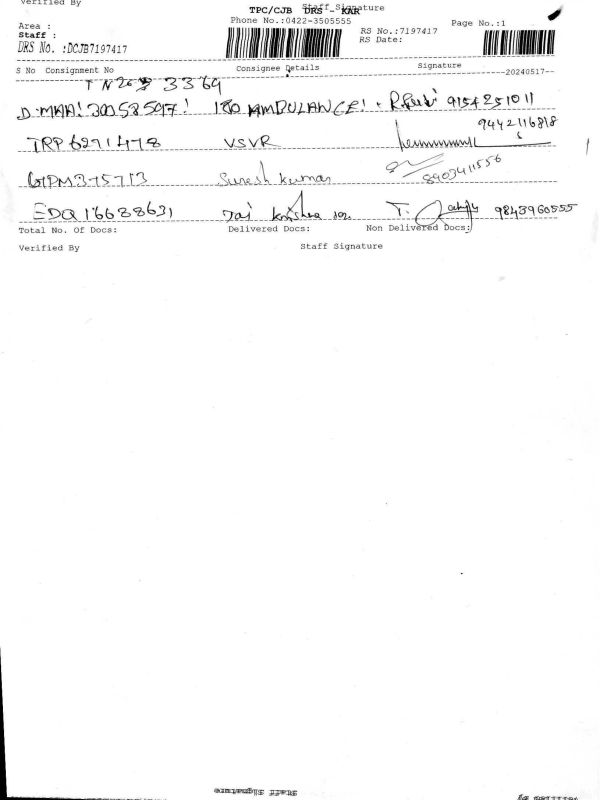 Verified By Staff Signature
TPC/CJB DRS - KAR
Area : Phone No.:0422-3505555 Page No.:1
Staff : RS No.:7197417
DRS No. :DCJB7197417 RS Date:
S No Consignment No Consignee Details Signature
--20240517--
3364
30058597! AMBULANCE!
TRP 6291478 VSVR 9442116818
375713 Suresh kumar 8903411556
EDQ 16638631 Jai T. 9843960555
Total No. Of Docs: Delivered Docs: Non Delivered Docs:
Verified By Staff Signature
Staff Signature